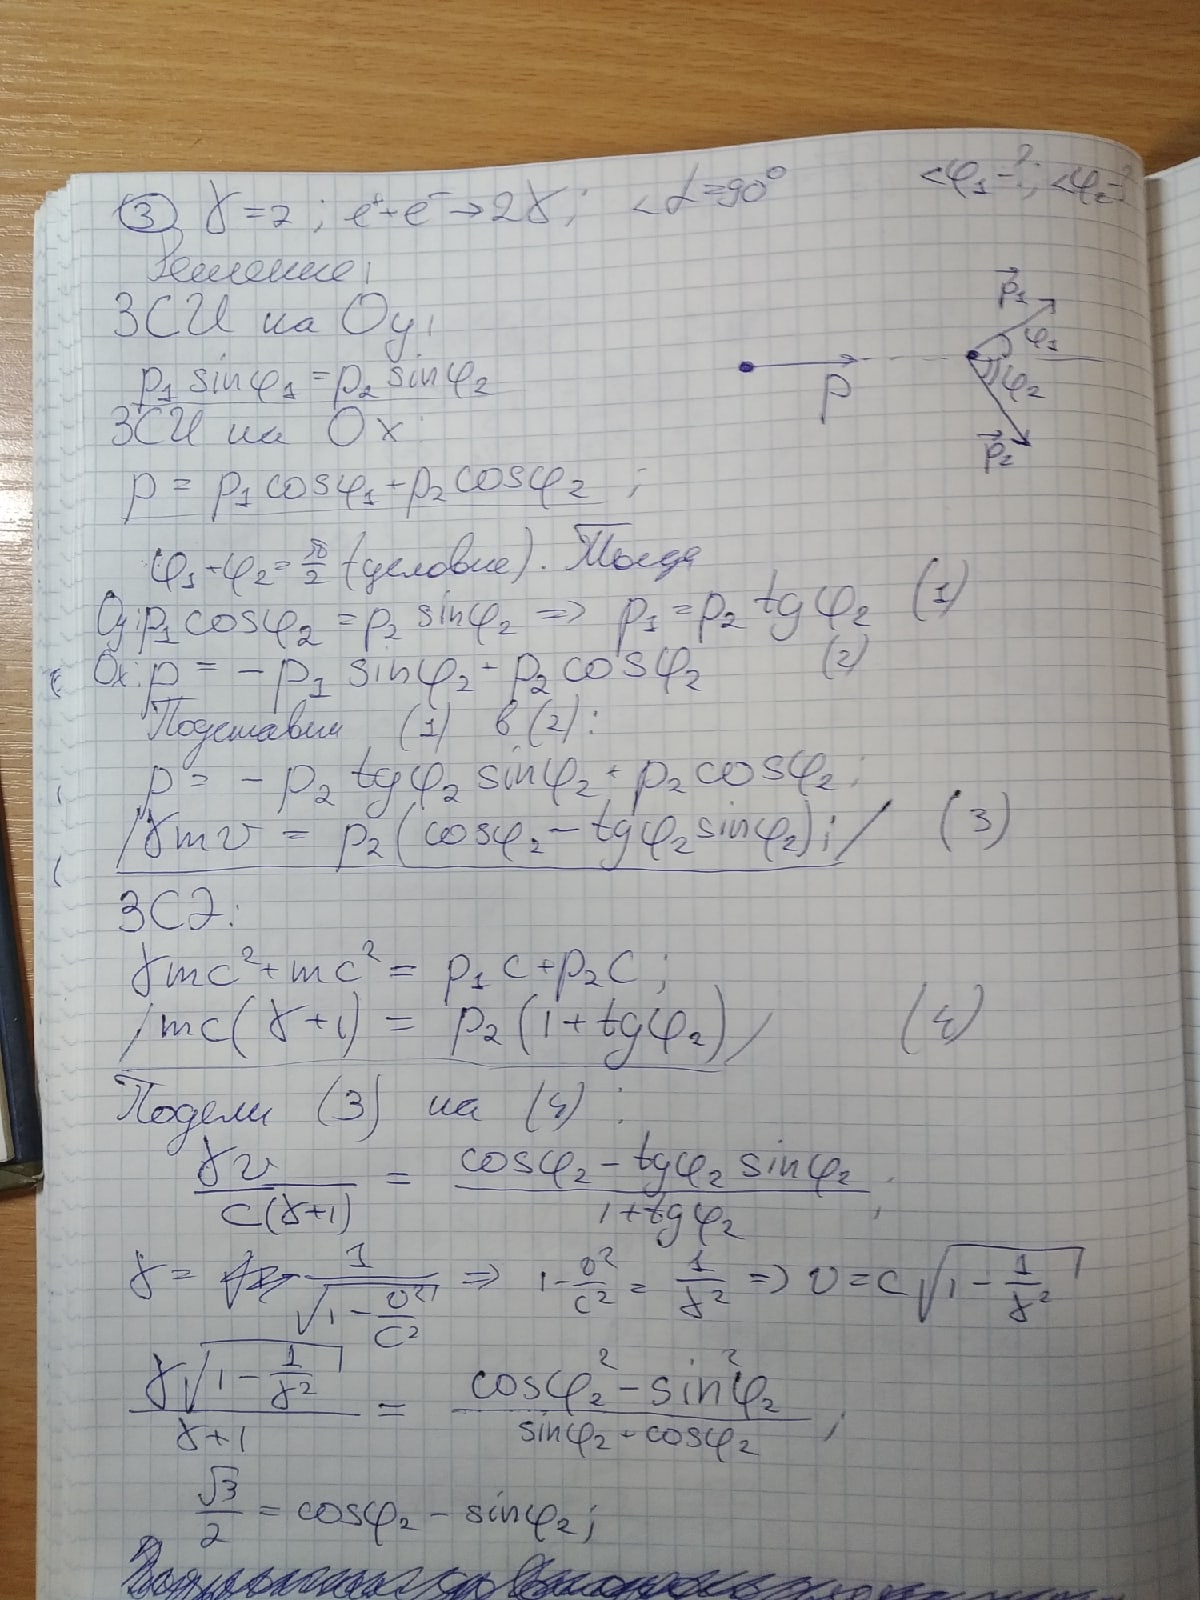 ③ γ=2; e⁺+e⁻→2γ; ∠α=90° ∠φ₁-?; ∠φ₂-?
Решение:
ЗСИ на Oy:
p₁ sinφ₁ = p₂ sinφ₂
ЗСИ на Ox:
p = p₁ cosφ₁ + p₂ cosφ₂;
p⃗₁
φ₁
p
φ₂
p⃗₂
φ₁+φ₂ = π/2 (условие). Тогда
Oy: p₁ cosφ₂ = p₂ sinφ₂ => p₁ = p₂ tgφ₂ (1)
Ox: p = -p₁ sinφ₂ + p₂ cosφ₂ (2)
Подставим (1) в (2):
p = - p₂ tgφ₂ sinφ₂ + p₂ cosφ₂;
/γmv = p₂(cosφ₂ - tgφ₂ sinφ₂);/ (3)
ЗСЭ:
γmc² + mc² = p₁c + p₂c;
/mc(γ+1) = p₂(1+tgφ₂)/ (4)
Подели (3) на (4):
γv / c(γ+1) = (cosφ₂ - tgφ₂ sinφ₂) / (1+tgφ₂);
γ = 1/√(1 - v²/c²) => 1 - v²/c² = 1/γ² => v = c√(1 - 1/γ²)
γ√(1 - 1/γ²) / (γ+1) = (cosφ₂² - sin²φ₂) / (sinφ₂ + cosφ₂);
√3/2 = cosφ₂ - sinφ₂;